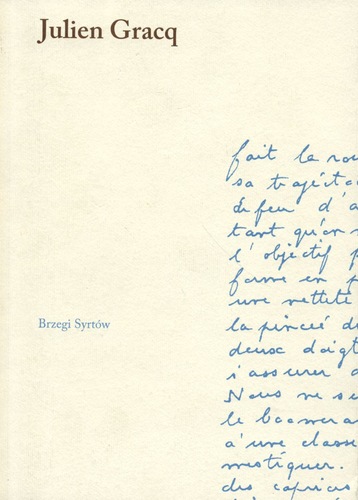 Julien Gracq
fait le rou
sa trajecto
de feu d'a
tant qu'on
l'objectif
forme en
une netteté
Brzegi Syrtów
la pincée d
deux doigt
s'assurer
Nous ne se
le boomera
d'une classe
mestiquer.
des caprices